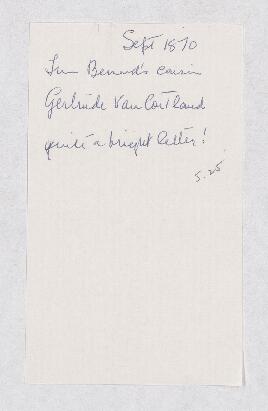 Sept 1870
From Bernard's cousin
Gertrude Van Cortland
quite a bright letter!
5.25